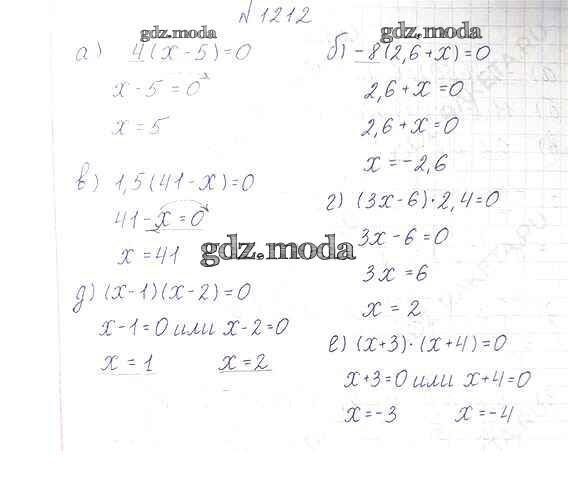 № 1212
gdz.moda
gdz.moda
а) 4(x-5)=0
x-5=0
x=5
б) -8(2,6+x)=0
2,6+x=0
2,6+x=0
x=-2,6
в) 1,5(41-x)=0
41-x=0
x=41
г) (3x-6)·2,4=0
3x-6=0
3x=6
x=2
gdz.moda
д) (x-1)(x-2)=0
x-1=0 или x-2=0
x=1 x=2
е) (x+3)·(x+4)=0
x+3=0 или x+4=0
x=-3 x=-4